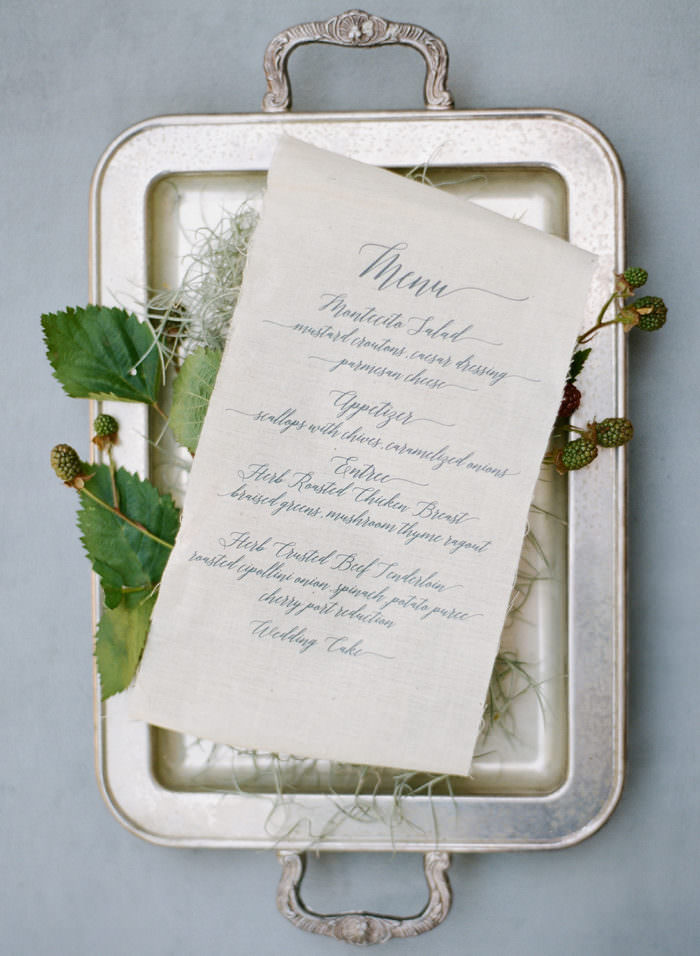 Menu
Montecito Salad
mustard croutons, caesar dressing
parmesan cheese
Appetizer
scallops with chives, caramelized onions
Entree
Herb Roasted Chicken Breast
braised greens, mushroom thyme ragout
Herb Crusted Beef Tenderloin
roasted cipollini onion, spinach, potato puree
cherry port reduction
Wedding Cake